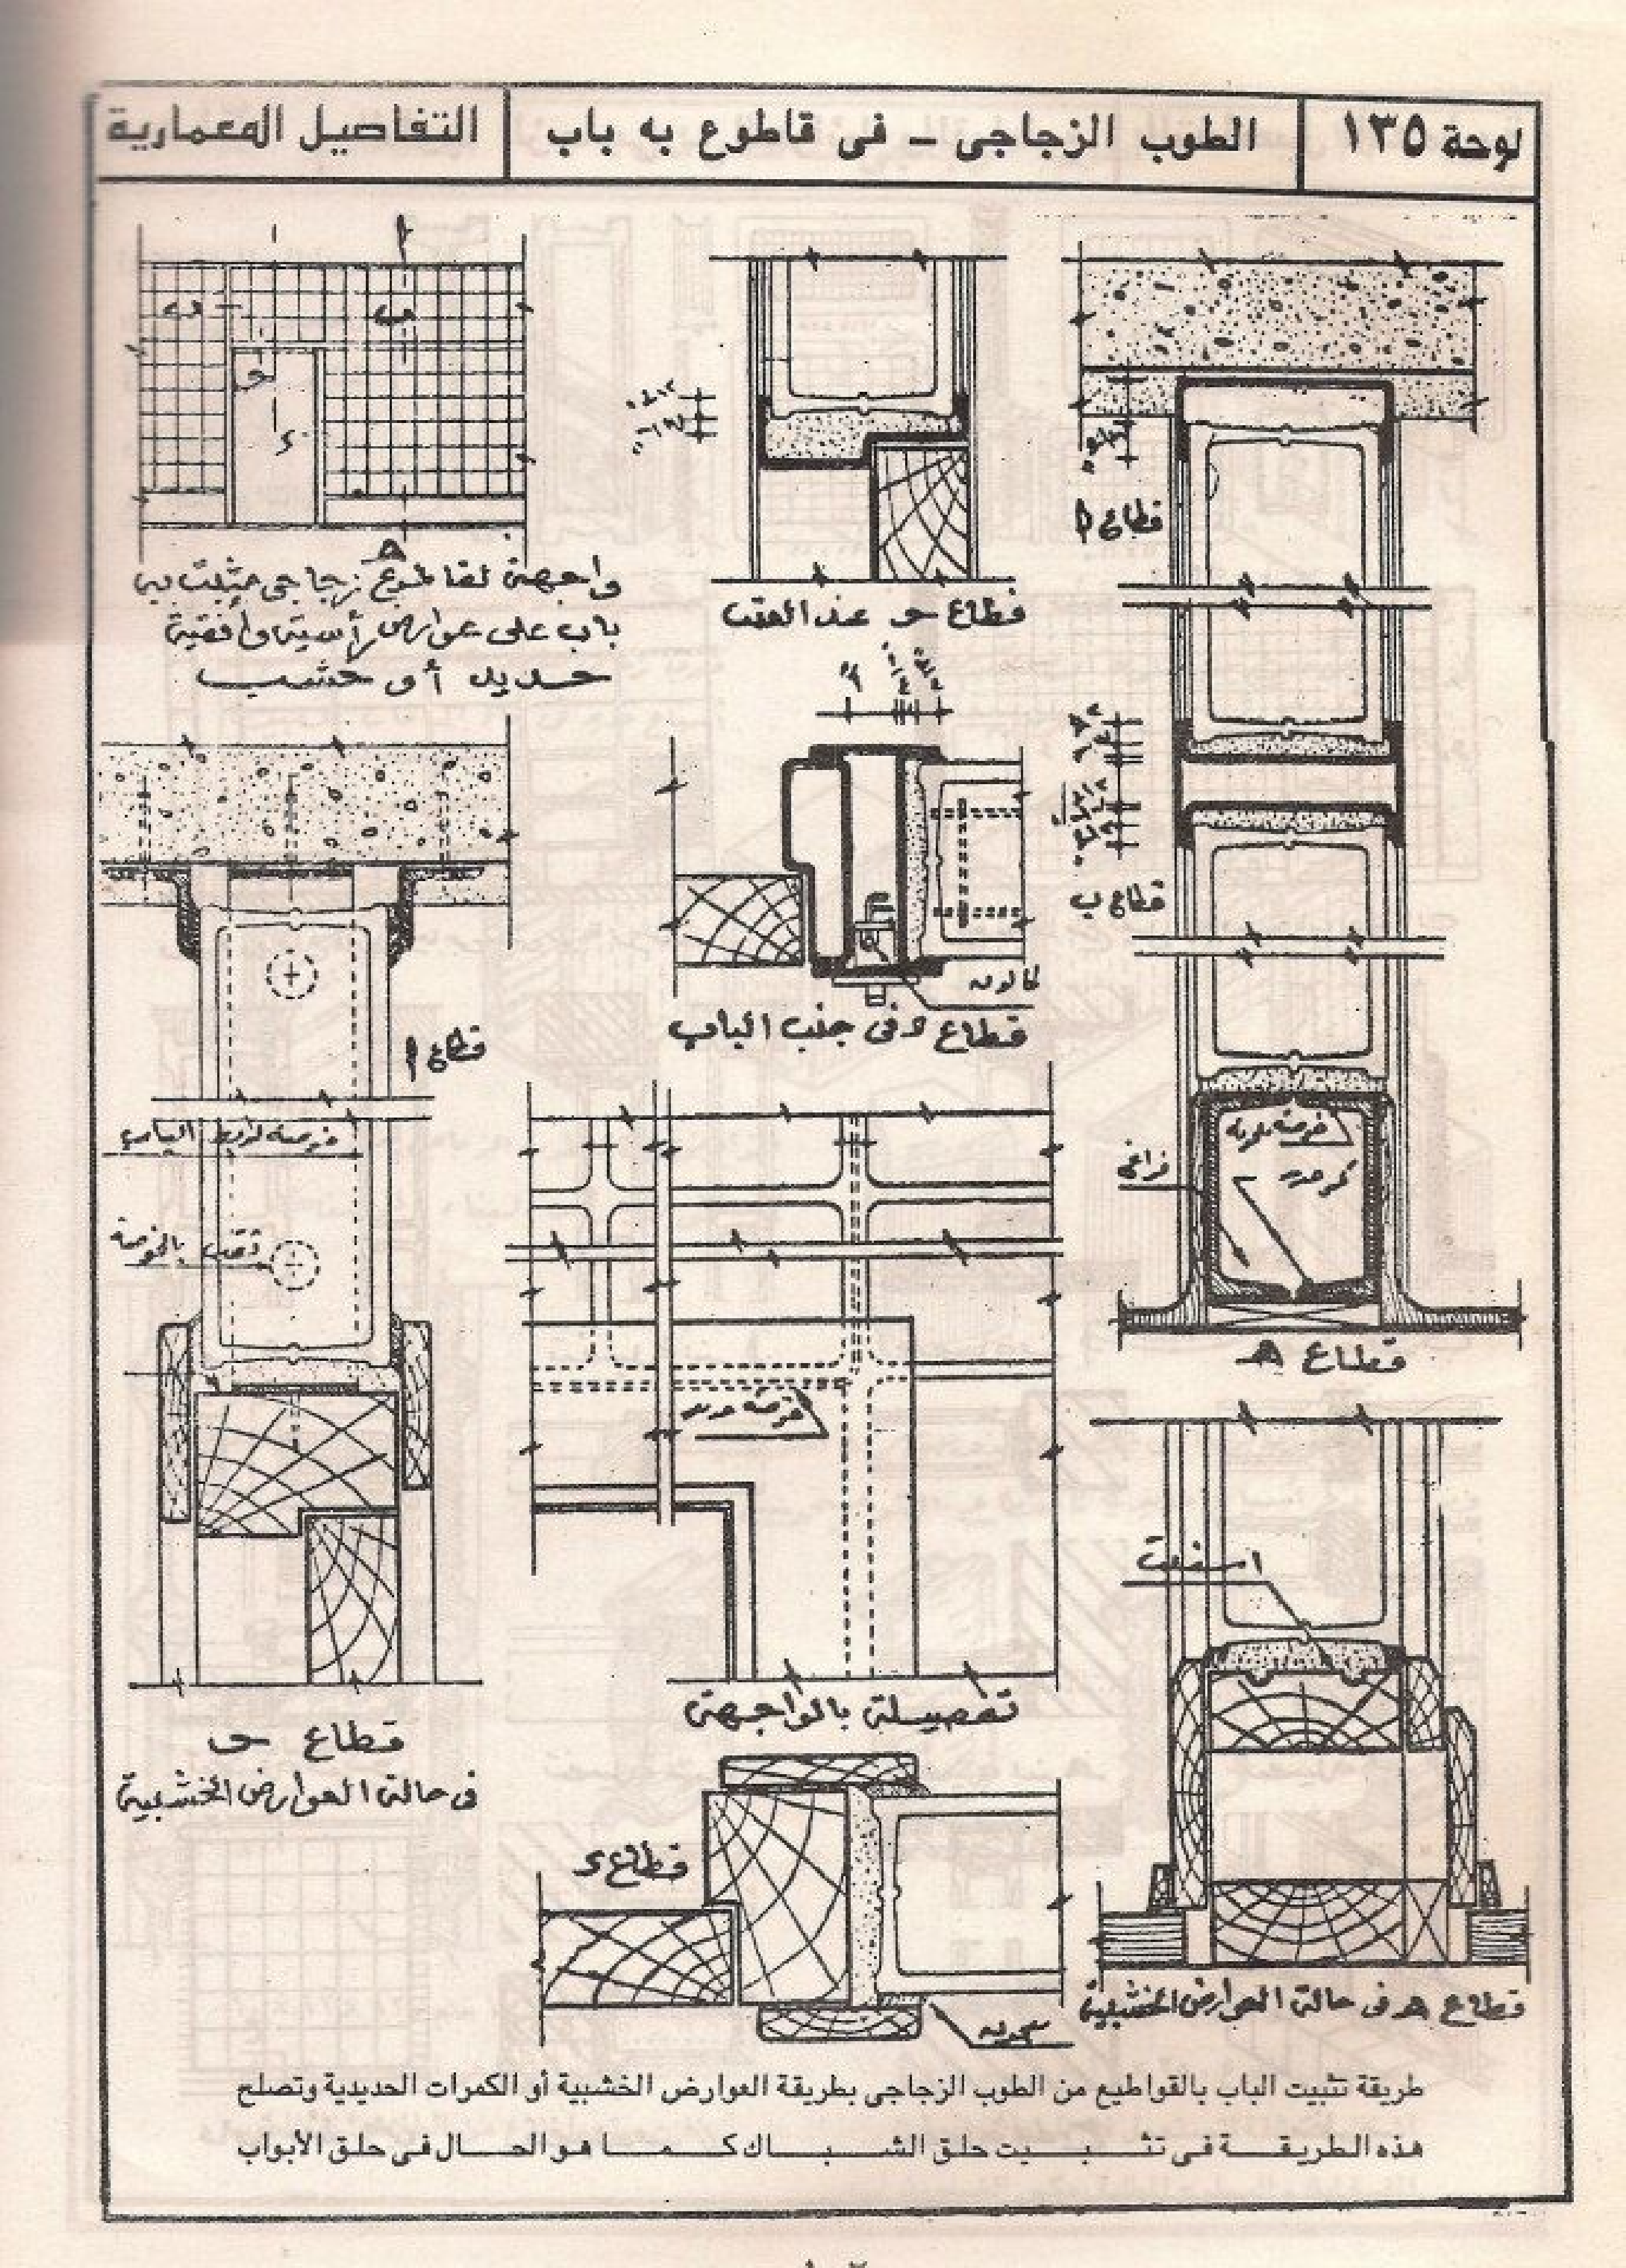 لوحة ١٣٥
الطوب الزجاجى - فى قاطوع به باب
التفاصيل المعمارية
واجهة لقاطوع زجاجى مثبت به
باب على عوارض رأسية وأفقية
حديد أو خشب
قطاع حـ عند العتب
قطاع أ
قطاع ب
قطاع د فى جنب الباب
كالون
قطاع أ
خوصة لزوم الباب
ثقب بالخوصة
خوصة حديد
تفصيلة بالواجهة
فراغ
قطاع هـ
قطاع حـ
فى حالة العوارض الخشبية
اسفلت
قطاع د
قطاع هـ فى حالة العوارض الخشبية
طريقة تثبيت الباب بالقواطيع من الطوب الزجاجى بطريقة العوارض الخشبية أو الكمرات الحديدية وتصلح
هذه الطريقة فى تثبيت حلق الشباك كما هو الحال فى حلق الأبواب